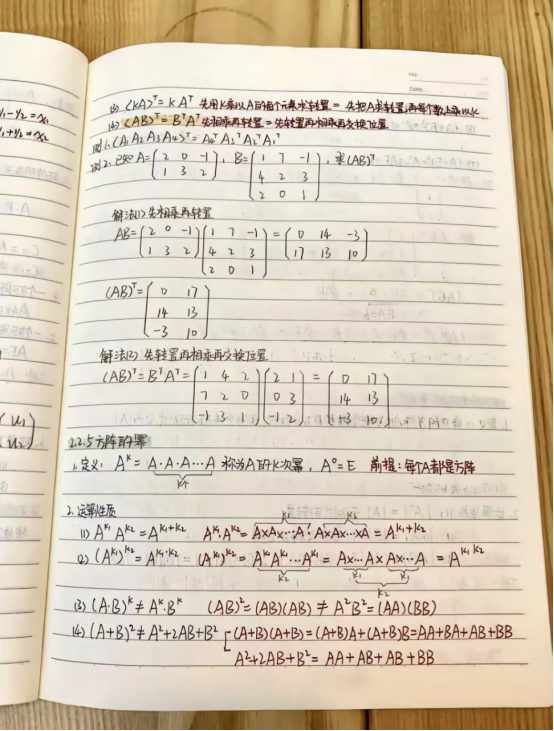 No.
Date.
y₁-y₂=x₁
y₁+y₂=x₂
(3) (KA)ᵀ=KAᵀ 先用K乘以A的每个元素求转置=先把A求转置,再每个数上乘以K
(4) (AB)ᵀ=BᵀAᵀ 先相乘再转置=先转置再相乘再交换位置
例1. (A₁A₂A₃A₄)ᵀ=A₄ᵀA₃ᵀA₂ᵀA₁ᵀ
例2. 已知A=(2 0 -1; 1 3 2), B=(1 7 -1; 4 2 3; 2 0 1), 求(AB)ᵀ
解法(1) 先相乘再转置
AB=(2 0 -1; 1 3 2)(1 7 -1; 4 2 3; 2 0 1)=(0 14 -3; 17 13 10)
(AB)ᵀ=(0 17; 14 13; -3 10)
解法(2) 先转置再相乘再交换位置
(AB)ᵀ=BᵀAᵀ=(1 4 2; 7 2 0; -1 3 1)(2 1; 0 3; -1 2)=(0 17; 14 13; -3 10)
2.2.5 方阵的幂
1. 定义: Aᴷ=A·A·A…A 称为A的K次幂, A⁰=E 前提:每个A都是方阵
K个
2. 运算性质
(1) Aᴷ¹Aᴷ²=Aᴷ¹⁺ᴷ² Aᴷ¹·Aᴷ²=AxAx…A·AxAx…xA=Aᴷ¹⁺ᴷ²
K₁ K₂
(2) (Aᴷ¹)ᴷ²=Aᴷ¹ᴷ² (Aᴷ¹)ᴷ²=Aᴷ¹Aᴷ¹…Aᴷ¹=Ax…AxAx…A=Aᴷ¹ᴷ²
K₂ K₁ K₁
K₂
(3) (A·B)ᴷ≠Aᴷ·Bᴷ (AB)²=(AB)(AB)≠A²B²=(AA)(BB)
(4) (A+B)²≠A²+2AB+B² (A+B)(A+B)=(A+B)A+(A+B)B=AA+BA+AB+BB
A²+2AB+B²=AA+AB+AB+BB